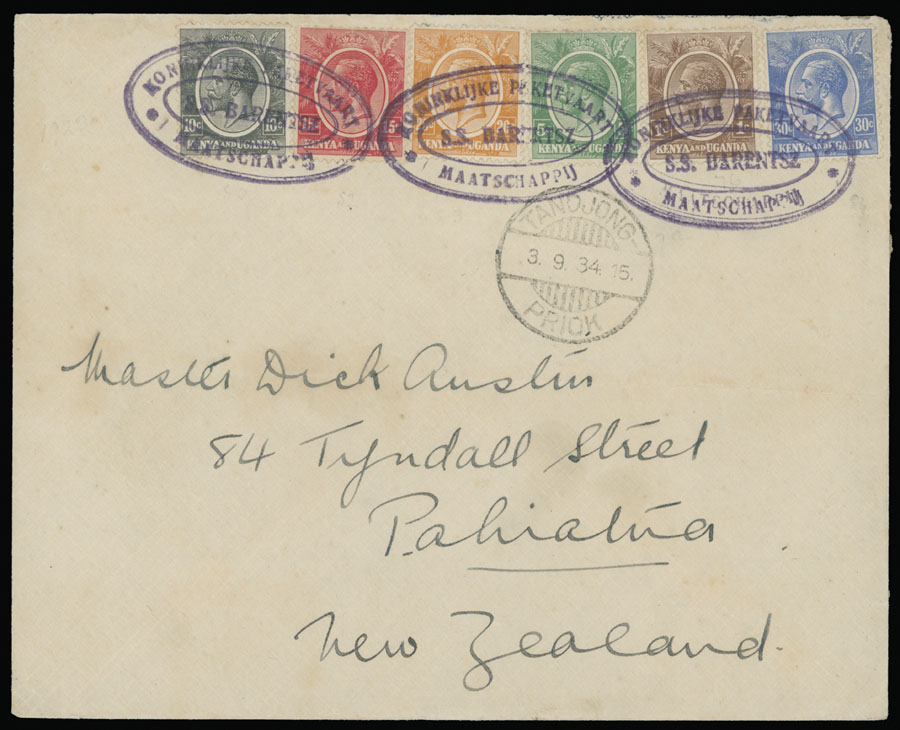 10c 10c
KENYA AND UGANDA
15c
KENYA AND UGANDA
KENYA AND UGANDA
5c
KENYA AND UGANDA
KENYA AND UGANDA
30c 30c
KENYA AND UGANDA
KONINKLIJKE PAKETVAART
S.S. BARENTSZ
MAATSCHAPPIJ
KONINKLIJKE PAKETVAART
S.S. BARENTSZ
MAATSCHAPPIJ
KONINKLIJKE PAKETVAART
S.S. BARENTSZ
MAATSCHAPPIJ
TANDJONG-
3. 9. 34. 15.
PRIOK
Master Dick Austin
84 Tyndall Street
Pahiatua
New Zealand.